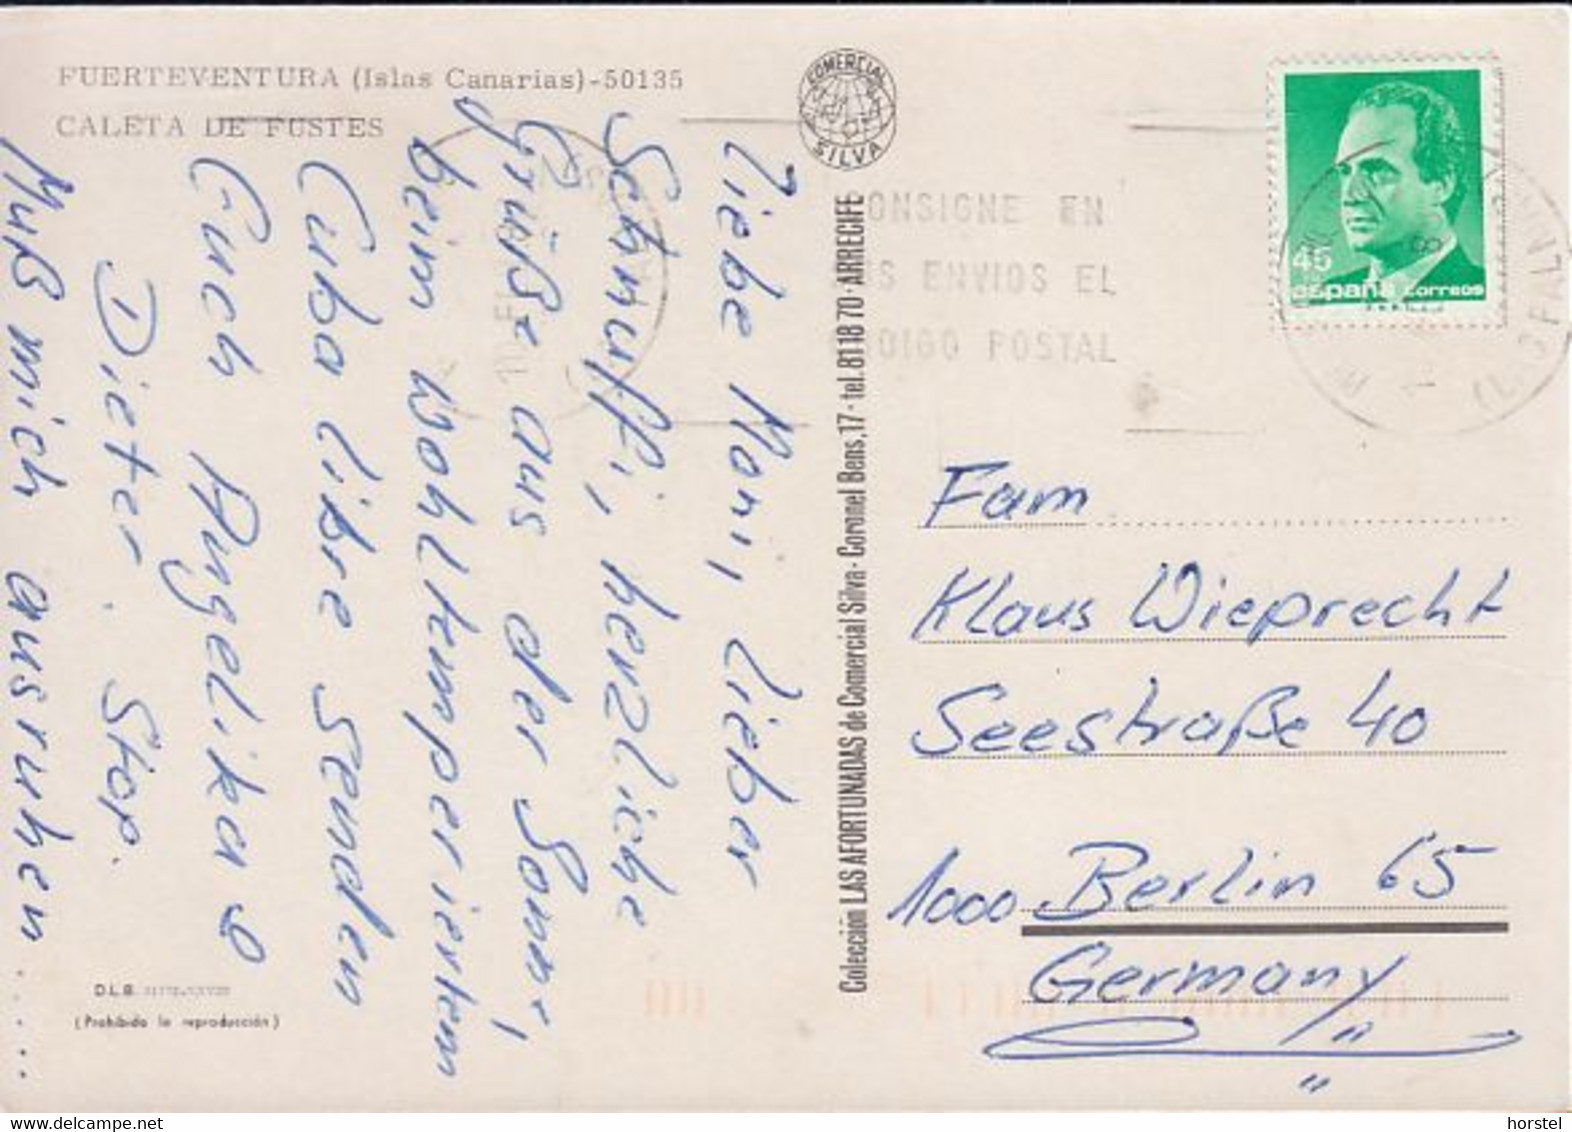 FUERTEVENTURA (Islas Canarias)-50135
CALETA DE FUSTES
COMERCIAL
SILVA
Liebe Moni, lieber
Schnuffi, herzliche
Grüße aus der Sonne,
beim wohltemperierten
Cuba libre senden
Euch Angelika &
Dieter. Stop.
Muß mich ausruhen......
D.L.B.
(Prohibida la reproducción)
Colección LAS AFORTUNADAS de Comercial Silva · Coronel Bens, 17 · tel. 81 18 70 · ARRECIFE
ONSIGNE EN
S ENVIOS EL
DIGO POSTAL
45
españa correos
Fam
Klaus Wieprecht
Seestraße 40
1000 Berlin 65
Germany
horstel